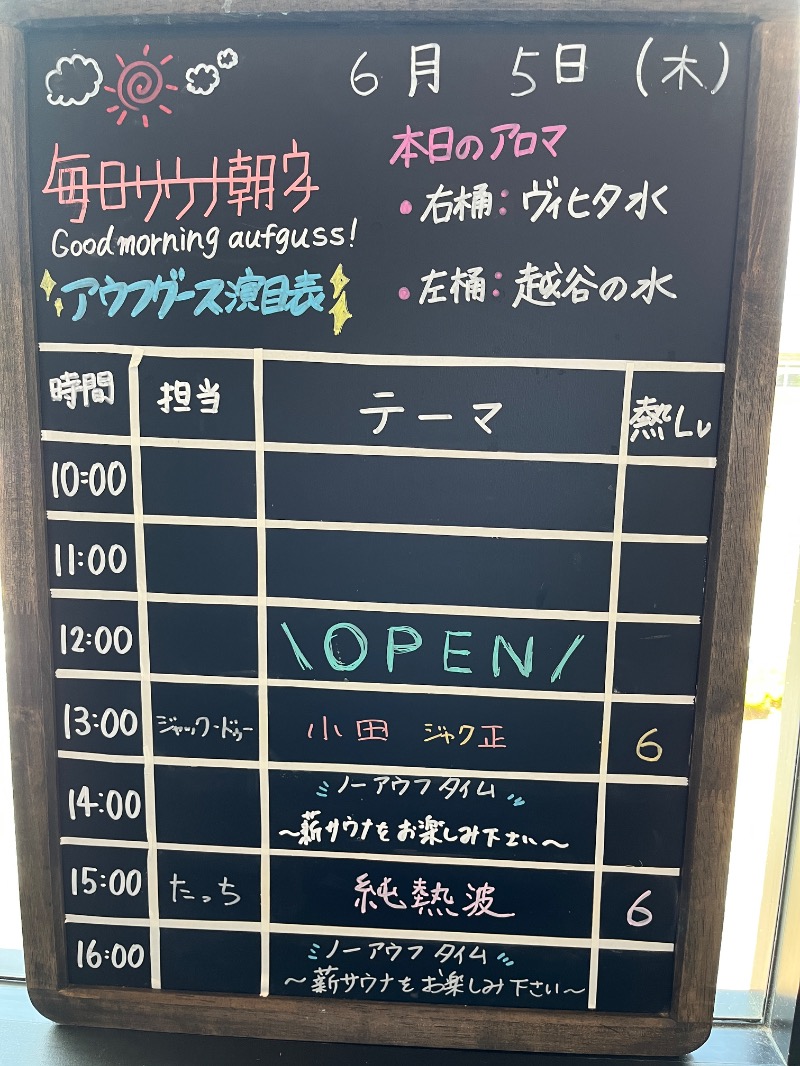 6月 5日 (木)
毎日サウナ朝ウ
Good morning aufguss!
アウフグース演目表
本日のアロマ
・右桶:ヴィヒタ水
・左桶:越谷の水
時間 担当 テーマ 熱Lv
10:00
11:00
12:00 \OPEN/
13:00 ジャック・ドゥー 小田 ジャク正 6
14:00 ノーアウフタイム
~薪サウナをお楽しみ下さい~
15:00 たっち 純熱波 6
16:00 ノーアウフタイム
~薪サウナをお楽しみ下さい~